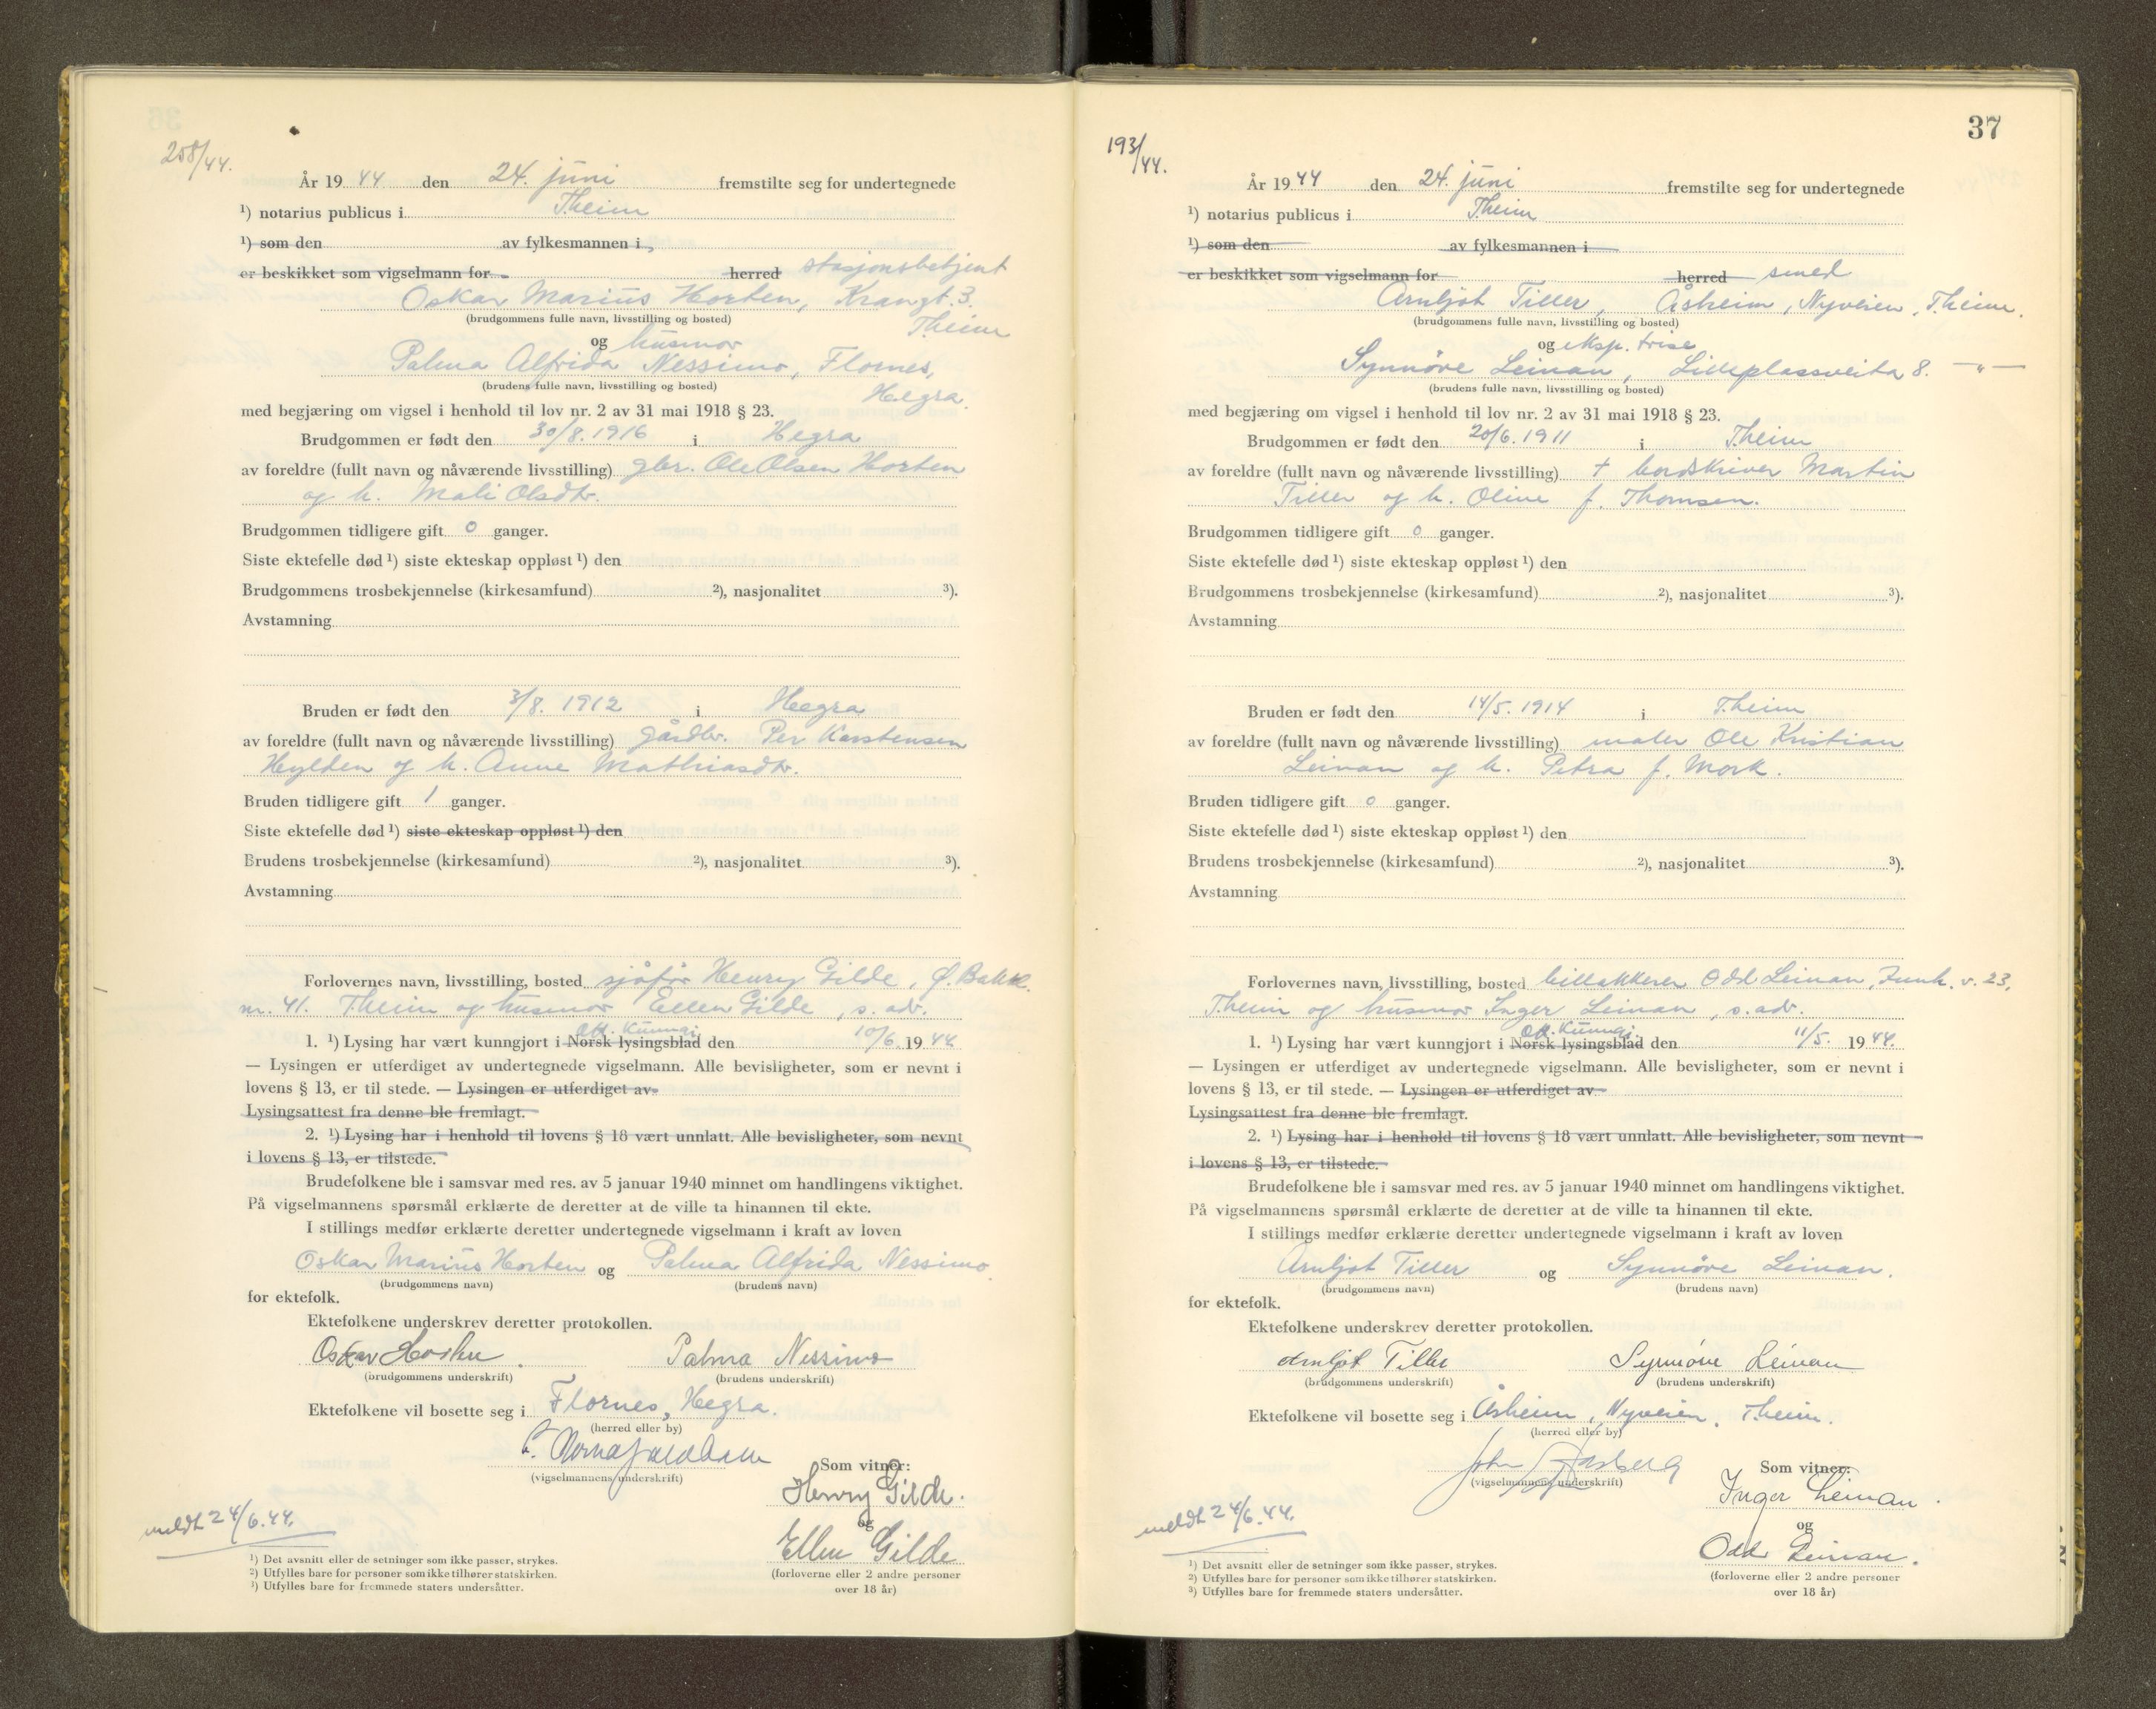 258/44.
År 19 44 den 24. juni fremstilte seg for undertegnede
¹) notarius publicus i T.heim
¹) som den av fylkesmannen i
er beskikket som vigselmann for herred stasjonsbetjent
Oskar Marius Horten, Krangt. 3.
(brudgommens fulle navn, livsstilling og bosted) T.heim
og husmor
Palma Alfrida Nessimo, Flornes,
(brudens fulle navn, livsstilling og bosted) Hegra.
med begjæring om vigsel i henhold til lov nr. 2 av 31 mai 1918 § 23.
Brudgommen er født den 30/8. 1916 i Hegra
av foreldre (fullt navn og nåværende livsstilling) gbr. Ole Olsen Horten
og h. Mali Olsdtr.
Brudgommen tidligere gift 0 ganger.
Siste ektefelle død ¹) siste ekteskap oppløst ¹) den
Brudgommens trosbekjennelse (kirkesamfund) ²), nasjonalitet ³).
Avstamning
Bruden er født den 3/8. 1912 i Hegra
av foreldre (fullt navn og nåværende livsstilling) gårdbr. Per Karstensen
Hylden og h. Anne Mathiasdtr.
Bruden tidligere gift 1 ganger.
Siste ektefelle død ¹) siste ekteskap oppløst ¹) den
Brudens trosbekjennelse (kirkesamfund) ²), nasjonalitet ³).
Avstamning
Forlovernes navn, livsstilling, bosted sjåfør Henry Gilde, Ø. Bakk.
nr. 41. T.heim og husmor Ellen Gilde, s. adr.
off. Kunngj.
1. ¹) Lysing har vært kunngjort i Norsk lysingsblad den 10/6. 19 44
— Lysingen er utferdiget av undertegnede vigselmann. Alle bevisligheter, som er nevnt i
lovens § 13, er til stede. — Lysingen er utferdiget av
Lysingsattest fra denne ble fremlagt.
2. ¹) Lysing har i henhold til lovens § 18 vært unnlatt. Alle bevisligheter, som nevnt
i lovens § 13, er tilstede.
Brudefolkene ble i samsvar med res. av 5 januar 1940 minnet om handlingens viktighet.
På vigselmannens spørsmål erklærte de deretter at de ville ta hinannen til ekte.
I stillings medfør erklærte deretter undertegnede vigselmann i kraft av loven
Oskar Marius Horten og Palma Alfrida Nessimo
(brudgommens navn) (brudens navn)
for ektefolk.
Ektefolkene underskrev deretter protokollen.
Oskar Horten. Palma Nessimo
(brudgommens underskrift) (brudens underskrift)
Ektefolkene vil bosette seg i Flornes, Hegra.
(herred eller by)
(vigselmannens underskrift)
Som vitner:
Henry Gilde.
og
Ellen Gilde
(forloverne eller 2 andre personer
over 18 år)
meldt 24/6.44.
¹) Det avsnitt eller de setninger som ikke passer, strykes.
²) Utfylles bare for personer som ikke tilhører statskirken.
³) Utfylles bare for fremmede staters undersåtter.
37
193/44.
År 19 44 den 24. juni fremstilte seg for undertegnede
¹) notarius publicus i T.heim
¹) som den av fylkesmannen i
er beskikket som vigselmann for herred smed
Arnljot Tiller, Åsheim, Nyveien, T.heim.
(brudgommens fulle navn, livsstilling og bosted)
og eksp. trise
Synnöve Leinan, Lilleplassveita 8. —"—
(brudens fulle navn, livsstilling og bosted)
med begjæring om vigsel i henhold til lov nr. 2 av 31 mai 1918 § 23.
Brudgommen er født den 20/6. 1911 i T.heim
av foreldre (fullt navn og nåværende livsstilling) † bordskriver Martin
Tiller og h. Oline f. Thomsen.
Brudgommen tidligere gift 0 ganger.
Siste ektefelle død ¹) siste ekteskap oppløst ¹) den
Brudgommens trosbekjennelse (kirkesamfund) ²), nasjonalitet ³).
Avstamning
Bruden er født den 14/5. 1914 i T.heim
av foreldre (fullt navn og nåværende livsstilling) maler Ole Kristian
Leinan og h. Petra f. Mork.
Bruden tidligere gift 0 ganger.
Siste ektefelle død ¹) siste ekteskap oppløst ¹) den
Brudens trosbekjennelse (kirkesamfund) ²), nasjonalitet ³).
Avstamning
Forlovernes navn, livsstilling, bosted billakkerer Odd Leinan, v. 23,
T.heim og husmor Inger Leinan, s. adr.
off. Kunngj.
1. ¹) Lysing har vært kunngjort i Norsk lysingsblad den 11/5. 19 44.
— Lysingen er utferdiget av undertegnede vigselmann. Alle bevisligheter, som er nevnt i
lovens § 13, er til stede. — Lysingen er utferdiget av
Lysingsattest fra denne ble fremlagt.
2. ¹) Lysing har i henhold til lovens § 18 vært unnlatt. Alle bevisligheter, som nevnt
i lovens § 13, er tilstede.
Brudefolkene ble i samsvar med res. av 5 januar 1940 minnet om handlingens viktighet.
På vigselmannens spørsmål erklærte de deretter at de ville ta hinannen til ekte.
I stillings medfør erklærte deretter undertegnede vigselmann i kraft av loven
Arnljot Tiller og Synnöve Leinan.
(brudgommens navn) (brudens navn)
for ektefolk.
Ektefolkene underskrev deretter protokollen.
Arnljot Tiller Synnöve Leinan
(brudgommens underskrift) (brudens underskrift)
Ektefolkene vil bosette seg i Åsheim, Nyveien, T.heim.
(herred eller by)
John Aasberg
(vigselmannens underskrift)
Som vitner:
Inger Leinan.
og
Odd Leinan.
(forloverne eller 2 andre personer
over 18 år)
meldt 24/6.44.
¹) Det avsnitt eller de setninger som ikke passer, strykes.
²) Utfylles bare for personer som ikke tilhører statskirken.
³) Utfylles bare for fremmede staters undersåtter.